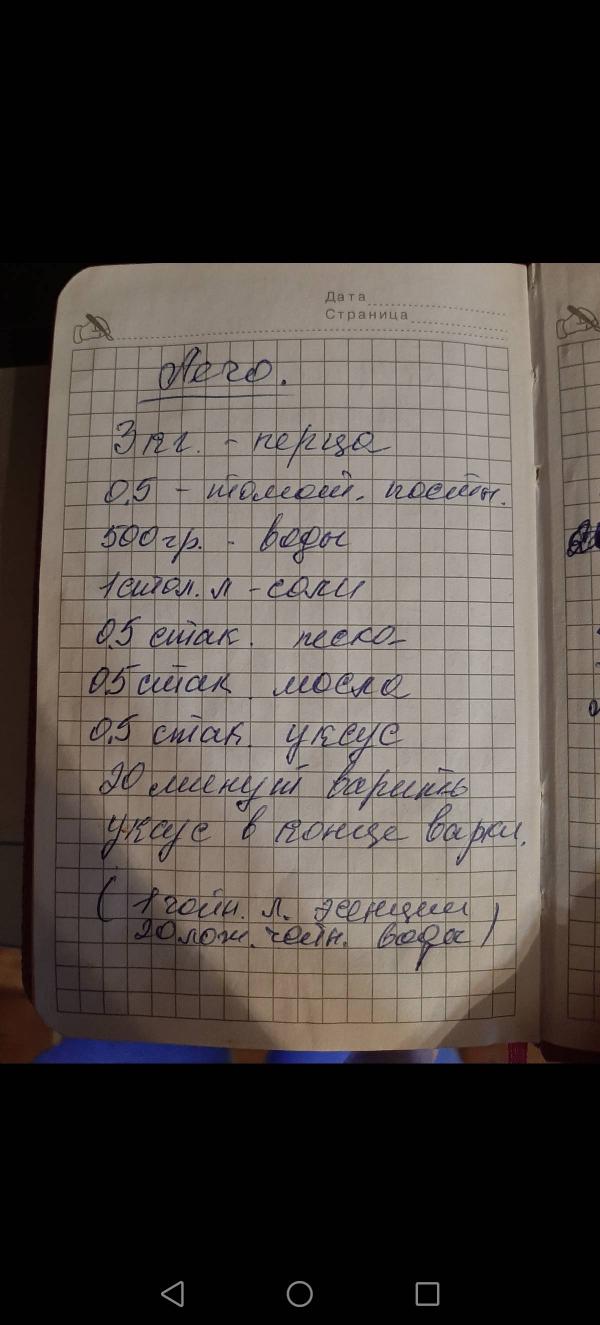 Дата
Страница
Лечо.
3 кг. - перца
0,5 - томат. пасты.
500 гр. - воды
1 стол. л - соли
0,5 стак. песка
0,5 стак. масла
0,5 стак. уксус
20 минут варить
уксус в конце варки.
(1 чайн. л. эсенции
20 лож. чайн. воды)